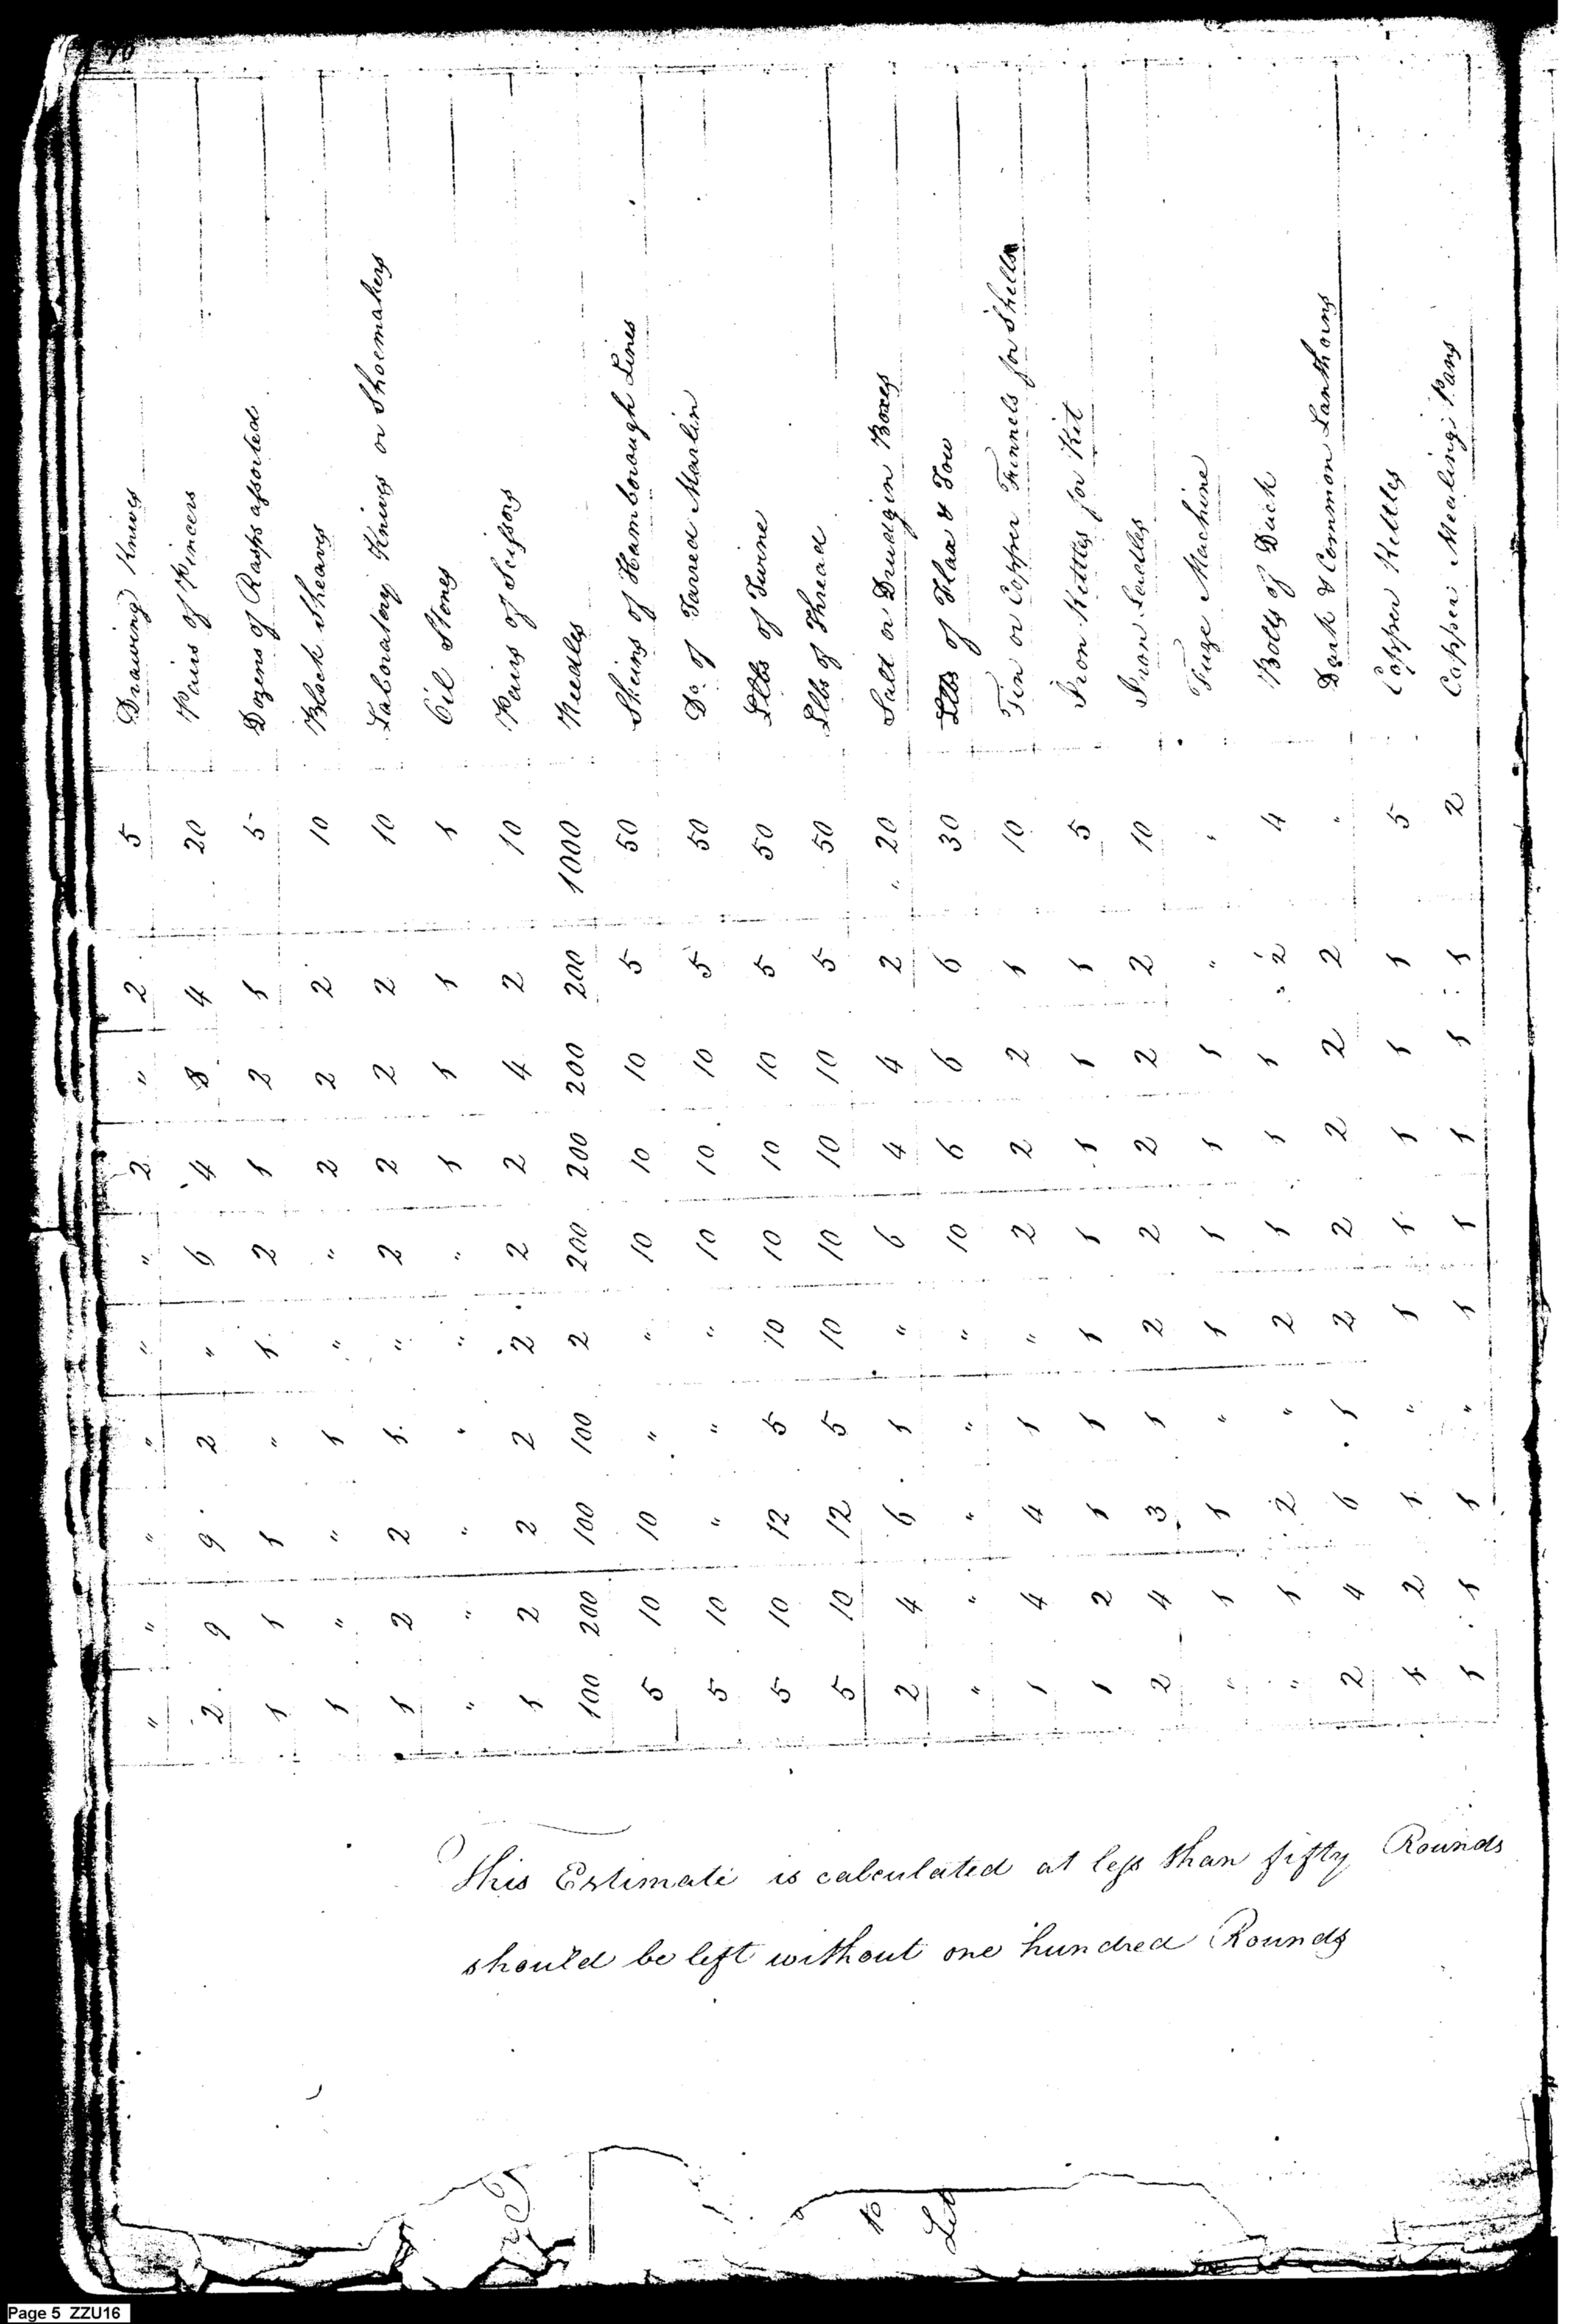 " " " " " " 2 " 2 5 Drawing Knives
2 9 9 2 " 6 4 8 4 20 Pairs of Pincers
1 1 1 " 1 2 1 2 1 5 Dozens of Rasps assorted
1 " " 1 " " 2 2 2 10 Block Sheaves
1 2 2 1 " 2 2 2 2 10 Laboratory Knives or Shoemakers
" " " " " " 1 1 1 1 Oil Stones
1 2 2 2 2 2 2 4 2 10 Pairs of Scissors
100 200 100 100 2 200 200 200 200 1000 Needles
5 10 10 " " 10 10 10 5 50 Skeins of Hamborough Lines
5 10 " " " 10 10 10 5 50 Do. of Tarred Marlin
5 10 12 5 10 10 10 10 5 50 Lbs of Twine
5 10 12 5 10 10 10 10 5 50 Lbs of Thread
2 4 6 1 " 6 4 4 2 20 Salt or Drudgin Boxes
" " " " " 10 6 6 6 30 Lbs of Flax & Tow
1 4 4 1 " 2 2 2 1 10 Tin or Copper Funnels for Shells
1 2 1 1 1 1 1 1 1 5 Iron Kettles for Kit
2 4 3 1 2 2 2 2 2 10 Iron Ladles
" 1 1 " 1 1 1 1 " " Fuze Machine
" 1 2 " 2 1 1 1 2 4 Bolts of Duck
2 4 6 1 2 2 2 2 2 " Dark & Common Lanthorns
1 2 1 " 1 1 1 1 1 5 Copper Kettles
1 1 1 " 1 1 1 1 1 2 Copper Mealing Pans
This Estimate is calculated at less than fifty Rounds
should be left without one hundred Rounds
Page 5 ZZU16